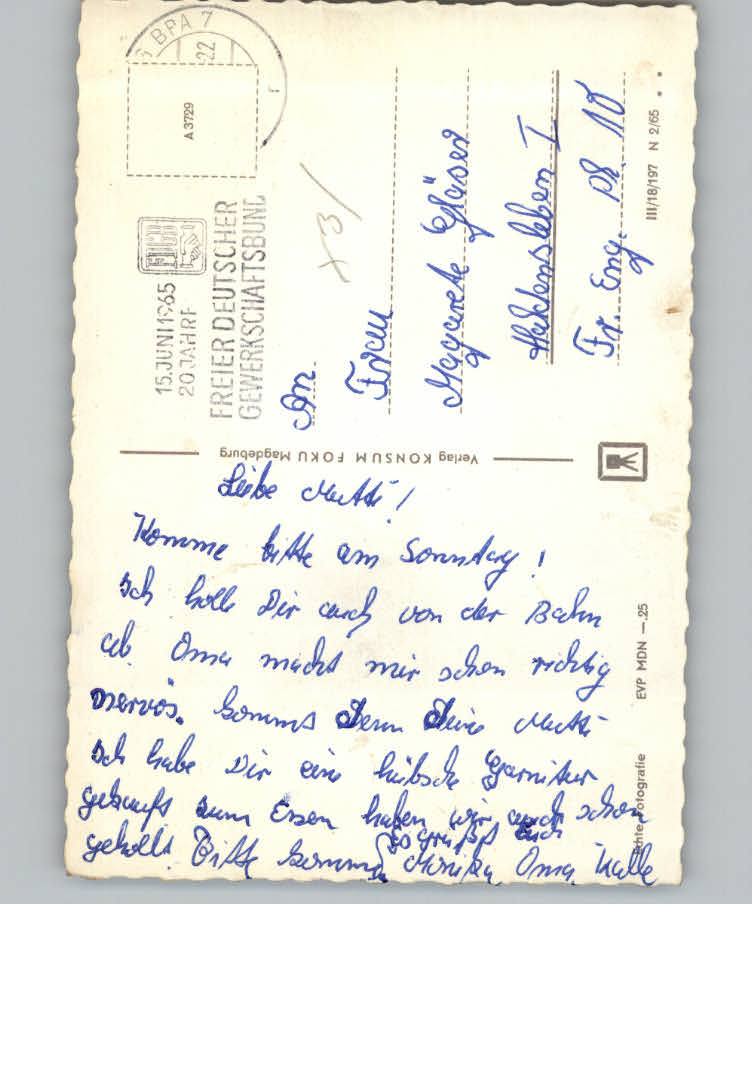 BPA 7
22
A 3729
FDGB
15. JUNI 1965
20 JAHRE
FREIER DEUTSCHER
GEWERKSCHAFTSBUND
x 3/
An
Frau
Magarete Gläser
Haldensleben I
Fr. Eng. Pl. 10
III/18/197 N 2/65
Verlag KONSUM FOKU Magdeburg
Liebe Mutti!
Komme bitte am Sonntag!
Ich holle Dir auch von der Bahn
ab. Oma macht mir schon richtig
nervös. kommt denn Deine Mutti
Ich habe Dir eine hübsche Garnitur
gekauft zum Essen haben wir auch schon
gehollt. Bitte komme
Es grüßt Euch
Monika, Oma, Kalle
Echte Fotografie
EVP MDN —.25